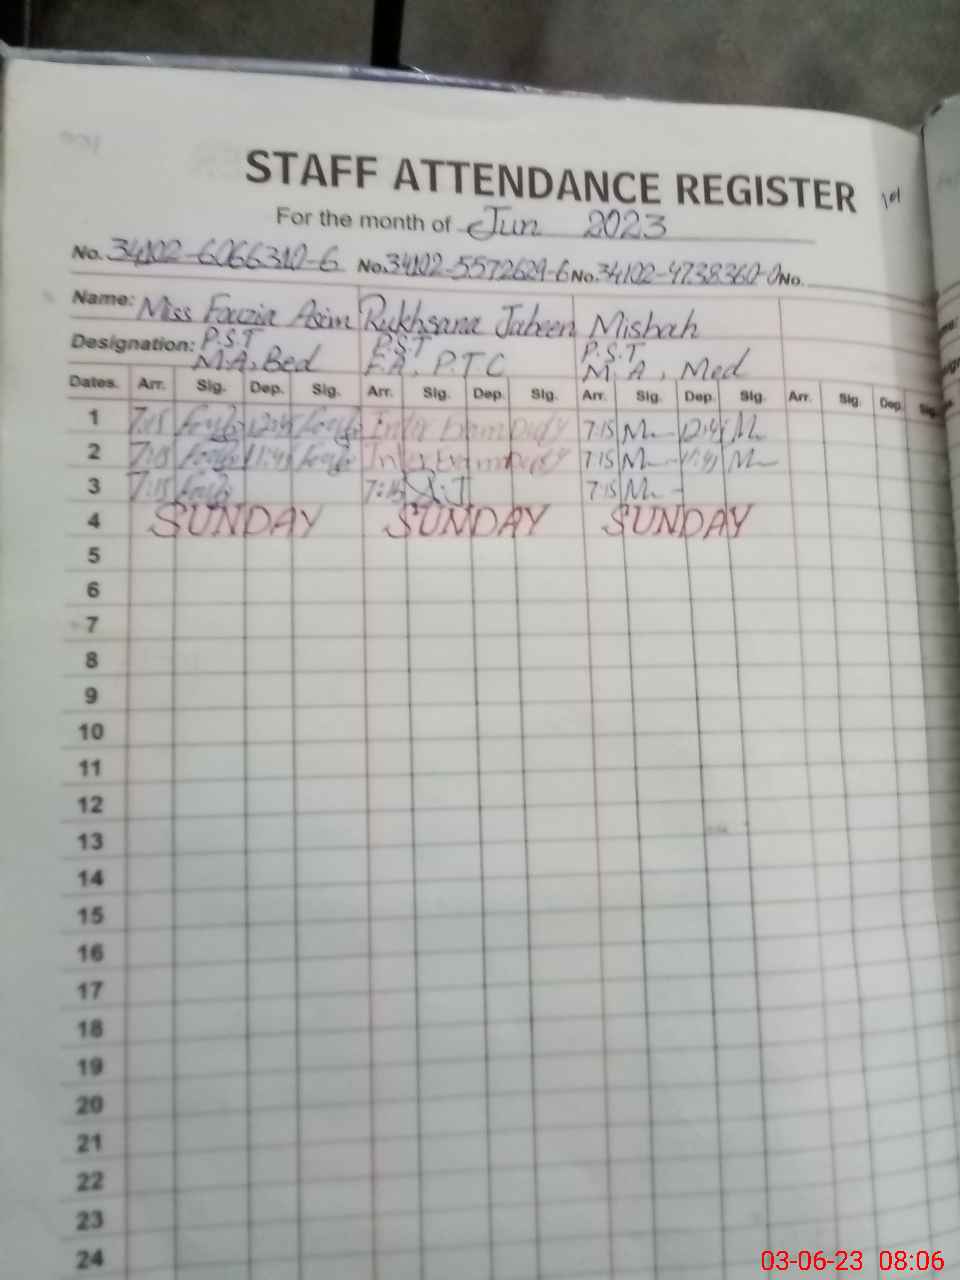 STAFF ATTENDANCE REGISTER 101
For the month of Jun 2023
No. 34102-6066310-6 No. 34102-5572629-6 No. 34102-4738360-0 No.
Name: Miss Fouzia Asim Rukhsana Jabeen Misbah
Designation: P.S.T P.S.T P.S.T
M.A, Bed F.A, P.T.C M.A, Med
Dates. Arr. Sig. Dep. Sig. Arr. Sig. Dep. Sig. Arr. Sig. Dep. Sig. Arr. Sig. Dep. Sig.
1 7:15 12:45 Inter Exam Duty 7:15 12:45
2 7:15 11:45 Inter Exam Duty 7:15 11:45
3 7:15 7:15 R.J 7:15
4 SUNDAY SUNDAY SUNDAY
5
6
7
8
9
10
11
12
13
14
15
16
17
18
19
20
21
22
23
24
03-06-23 08:06